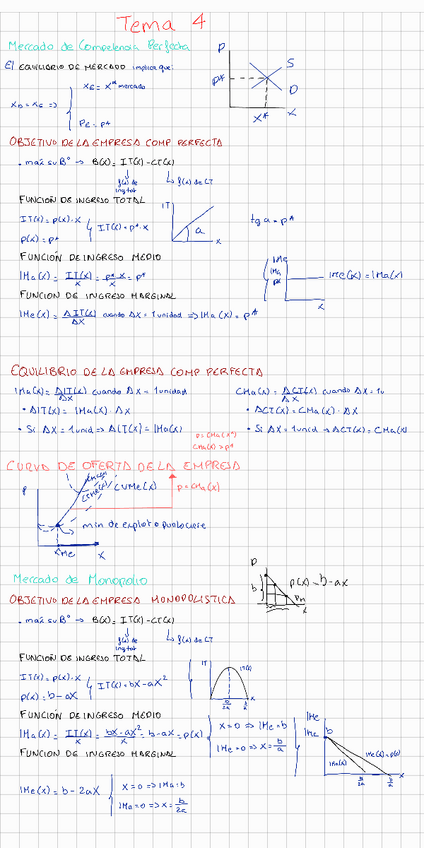 Tema 4
Mercado de Competencia Perfecta
El EQUILIBRIO DE MERCADO implica que:
XE = X* mercado
XD = XE =>
PE = P*
P
S
P*
D
X*
X
OBJETIVO DE LA EMPRESA COMP PERFECTA
. max su Bº → B(x) = IT(x) - CT(x)
f(x) de
f(x) de CT
FUNCION DE INGRESO TOTAL
IT(x) = p(x)·x
IT(x) = p*·x
p(x) = p*
IT
a
x
tg a = p*
FUNCION DE INGRESO MEDIO
IMe
IMa
p*
IMa(x) = IT(x)/x = p*·x/x = p*
IMe(x) = IMa(x)
x
FUNCION DE INGRESO MARGINAL
IMe(x) = ΔIT(x)/Δx cuando Δx = 1 unidad => IMa(x) = p*
EQUILIBRIO DE LA EMPRESA COMP PERFECTA
IMa(x) = ΔIT(x)/Δx cuando Δx = 1 unidad
CMa(x) = ΔCT(x)/Δx cuando Δx = 1u
• ΔIT(x) = IMa(x)·Δx
• ΔCT(x) = CMa(x)·Δx
• Si Δx = 1 unid → ΔIT(x) = IMa(x)
• Si Δx = 1 unid → ΔCT(x) = CMa(x)
CURVA DE OFERTA DE LA EMPRESA
CVMe(x)
p = CMa(x)
P
min de explot o
x
Mercado de Monopolio
P
b
p(x) = b - ax
x
OBJETIVO DE LA EMPRESA MONOPOLISTICA
. max su Bº → B(x) = IT(x) - CT(x)
f(x) de
f(x) de CT
FUNCION DE INGRESO TOTAL
IT(x) = p(x)·x
IT(x) = bx - ax²
p(x) = b - ax
IT
IT(x)
x
b/2a
b/a
FUNCION DE INGRESO MEDIO
IMa(x) = IT(x)/x = bx - ax²/x = b - ax = p(x)
x = 0 => IMe = b
IMe = 0 => x = b/a
IMe
IMe
b
IMe(x) = p(x)
IMa(x)
b/2a
b/a
x
FUNCION DE INGRESO MARGINAL
IMe(x) = b - 2ax
x = 0 => IMa = b
IMa = 0 => x = b/2a